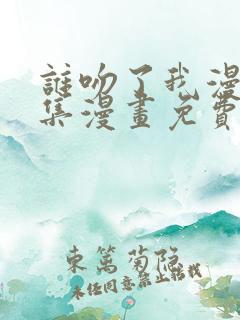 誰吻了我漫
集漫畫免費
東篱菊隐
未经同意禁止转载